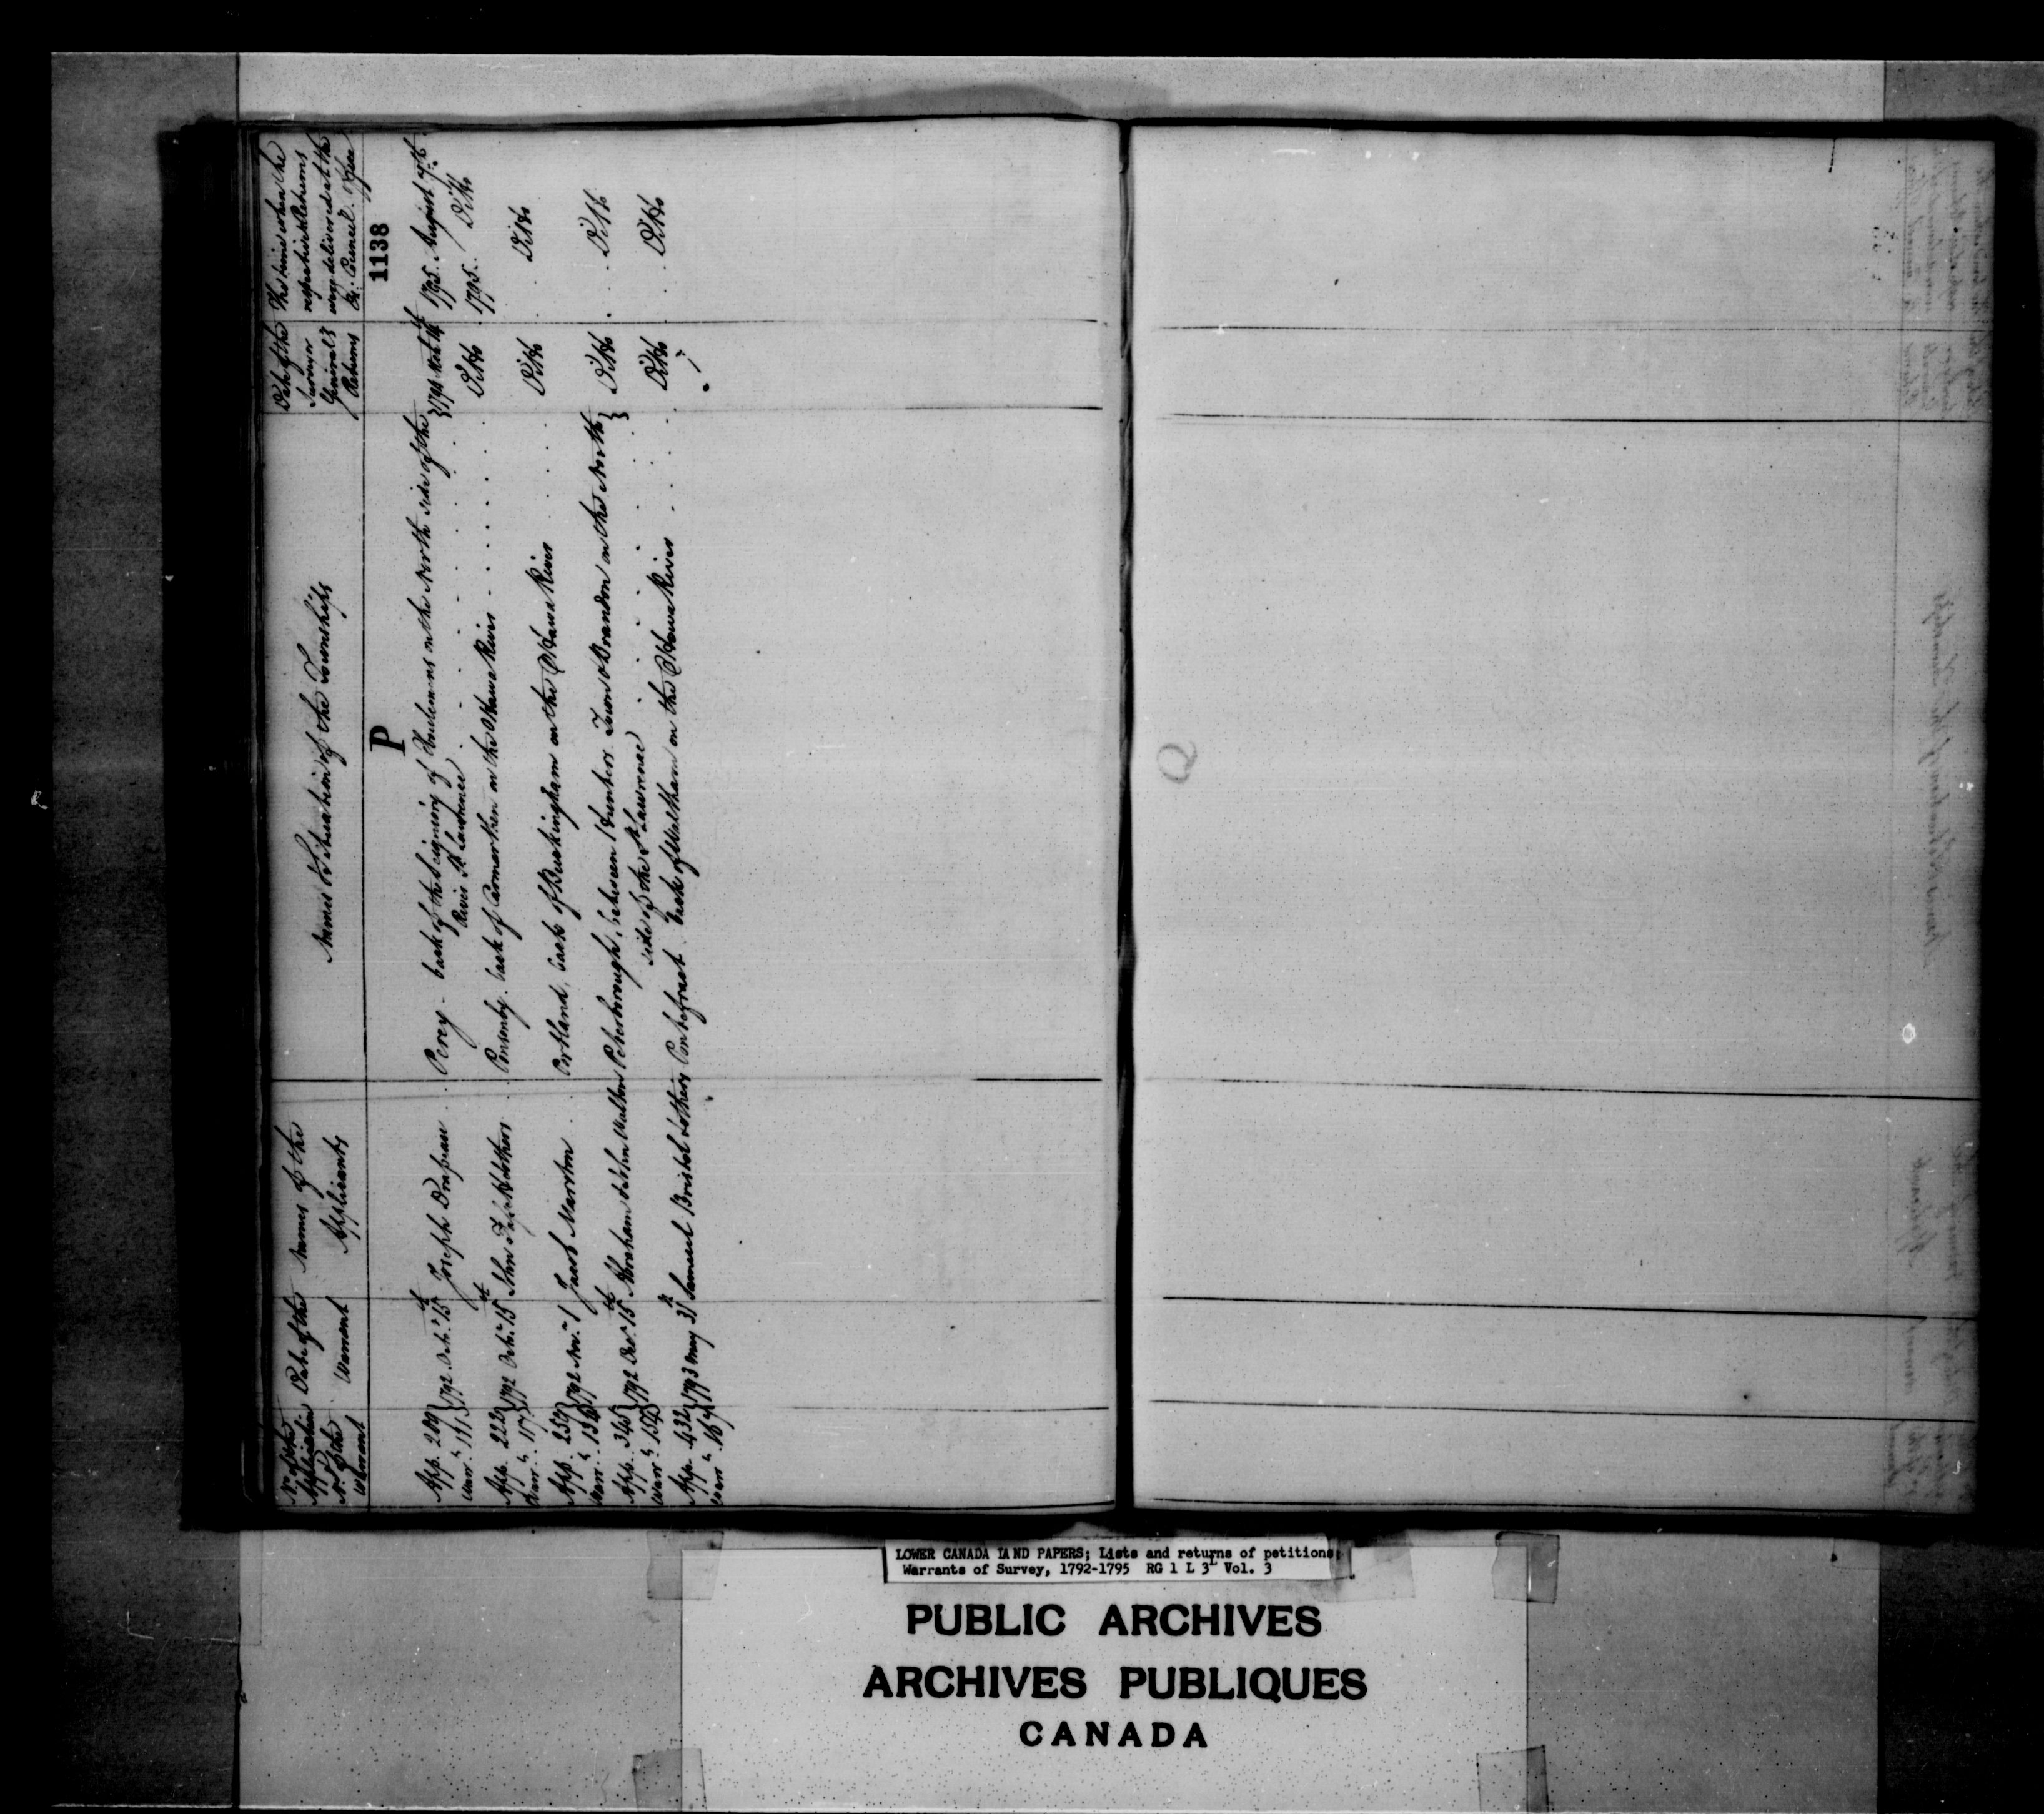 Nº. of the Application & Nº of the Warrant
Date of the Warrant
Names of the Applicants
Names & Situation of the Townships
Date of the Surveyor General's Returns
The time when the respective Returns were delivered at the Ex. Council Office
1138
P
App. 209 } 1792. Octr. 15th Joseph Drapeau . . Percy - back of the Seigniory of Eboulemens on the North side of the } 1794 1795. August
Warr. " 113 River St. Lawrence
App. 222 } 1792 Octr. 15th John . Ponsonby. back of Carmarthen on the Ottawa River . . . . . . Ditto 1795. Ditto
Warr. " 117
App. 259 } 1792 Novr. 1st Jacob Marston . Portland, back of Buckingham on the Ottawa River . . . . Ditto . . Ditto
Warr. " 134
App. 345 } 1792 Decr. 15th Abraham & John Walton Peterborough, between Hunters Town & Brandon on the North } Ditto . . . Ditto
Warr. " 154 side of the St. Lawrence
App. 432 } 1793 May 31st Samuel Bristol & others Pontefract back of Waltham on the Ottawa River . . . . Ditto . . . Ditto
Warr. " 167
Q
LOWER CANADA LAND PAPERS; Lists and returns of petitions;
Warrants of Survey, 1792-1795 RG 1 L 3L Vol. 3
PUBLIC ARCHIVES
ARCHIVES PUBLIQUES
CANADA